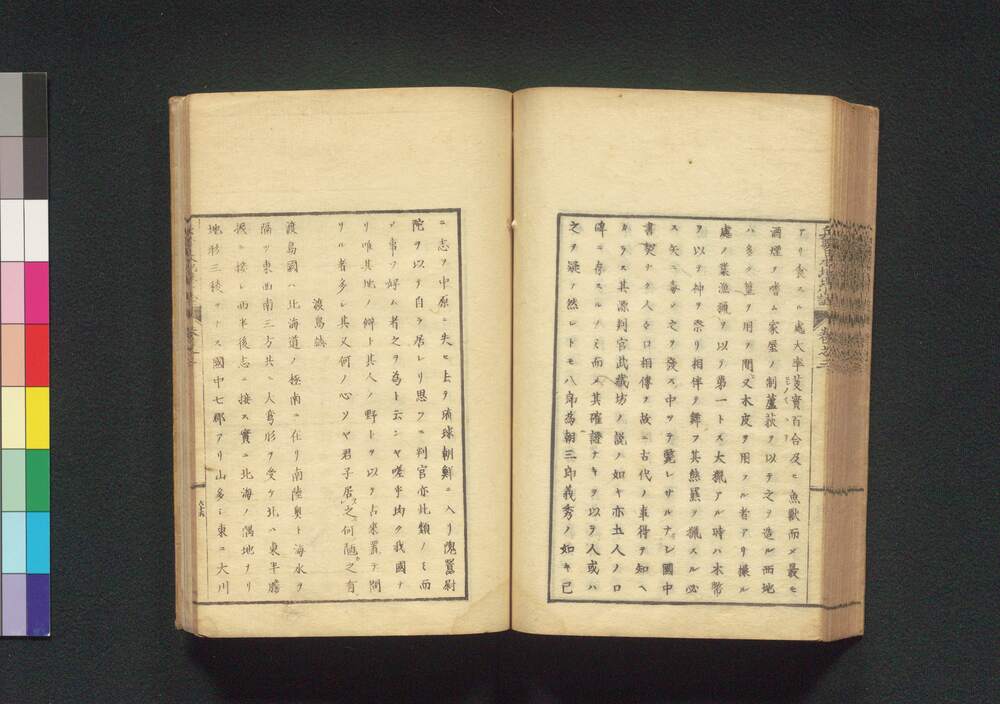 アリ食スル処大率菱實百合及ヒ魚獸而メ最モ
酒煙ヲ嗜ム家屋ノ制蘆荻ヲ以テ之ヲ造ル西地
ハ多ク篁ヲ用ヲ間又木皮ヲ用フル者アリ操ル
処ノ業漁猟ヲ以テ第一トス大猟アル時ハ木幣
ヲ以テ神ヲ祭リ相伴テ舞フ其熊羆ヲ猟スル必
ス矢ニ毒シ之ヲ發ス中ツテ斃レサルナシ國中
書契ナク人々口相傳フ故ニ古代ノ事得テ知ヘ
カラス其源判官武蔵坊ノ説ノ如キ亦土人ノ口
碑ニ存スルノミ而メ其確證ナキヲ以テ人或ハ
之ヲ疑フ然レトモ八郎為朝三郎義秀ノ如キ已
ニ志ヲ中原ニ失ヒ去テ琉球朝鮮ニ入リ傀儡尉
陀ヲ以テ自ラ居レリ思フニ判官亦此類ノミ而
メ事ヲ好ム者之ヲ為ト云ンヤ嗟乎均ク我國ナ
リ唯其地ノ僻ト其人ノ野トヲ以テ古来置テ問
サル者多シ其又何ノ心ソヤ君子居之何陋之有
渡島誌
渡島國ハ北海道ノ極南ニ在リ南陸奥ト海水ヲ
隔ツ東西南三方共ニ大灣形ヲ受ケ北ハ東半膽
振ニ接シ西半後志ニ接ス實ニ北海ノ隅地ナリ
地形三稜ヲナス國中七郡アリ山多シ東ニ大川